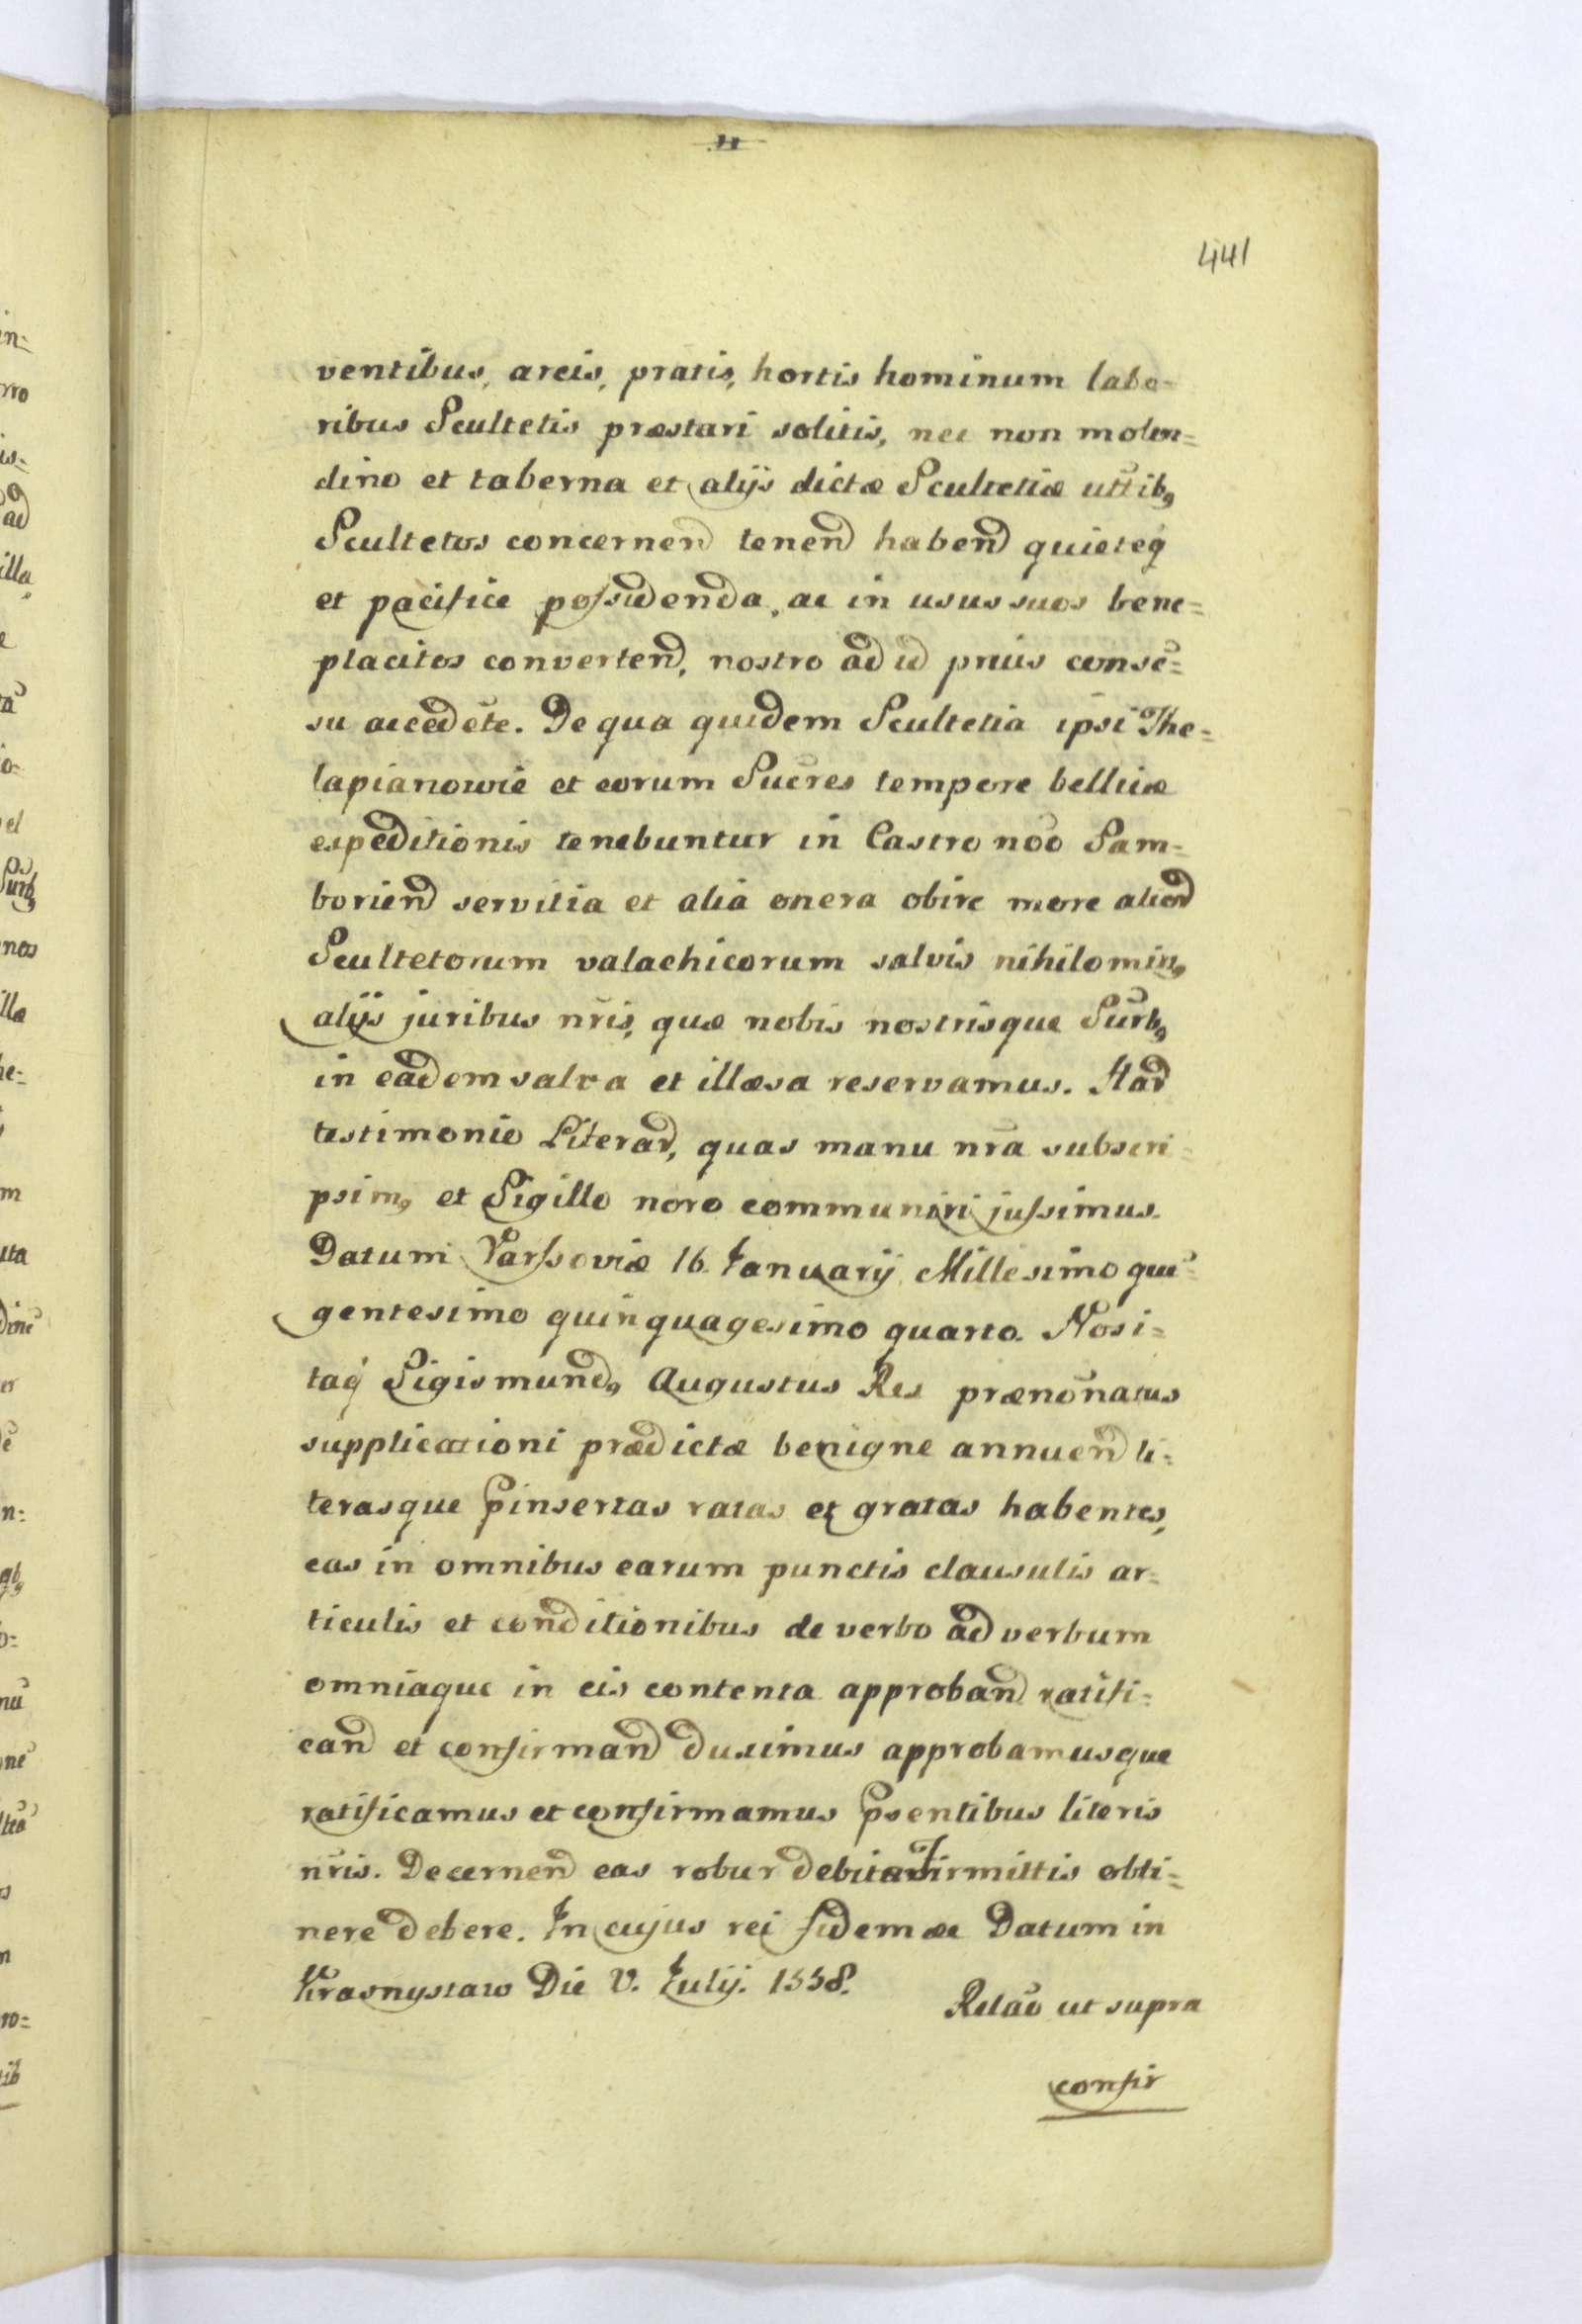 441
ventibus, areis, pratis, hortis hominum labo=
ribus Scultetis præstari solitis, nec non molen=
dino et taberna et alijs dictæ Scultetiæ uttib9
Scultetos concernen tenen haben quieteq
et pacifice possidenda, ac in usus suos bene=
placitos converten, nostro ad id prius consē=
su accedēte. De qua quidem Scultetia ipsi The=
lapianowie et eorum Sucres tempore bellicæ
expeditionis tenebuntur in Castro nōo Sam=
borien servitia et alia onera obire more alior
Scultetorum valachicorum salvis nihilomin9
alijs juribus nr̄is, quæ nobis nostrisque Surb9
in eadem salva et illæsa reservamus. Har
testimonio Literar, quas manu nr̄a subscri=
psim9 et Sigillo noro communiri jussimus.
Datum Varssoviæ 16 Januarij Millesimo quī=
gentesimo quinquagesimo quarto. Nosi=
taq Sigismund9 Augustus Rex prænōnatus
supplicationi prædictæ benigne annuen li=
terasque pinsertas ratas et gratas habentes,
eas in omnibus earum punctis clausulis ar=
ticulis et conditionibus de verbo ad verbum
omniaque in eis contenta approban ratifi=
can et confirman duximus approbamusque
ratificamus et confirmamus psentibus literis
nr̄is. Decernen eas robur debitæ firmittis obti=
nere debere. In cujus rei fidem æc Datum in
Krasnystaw Die V. Julij. 1558.
Relāo ut supra
confir